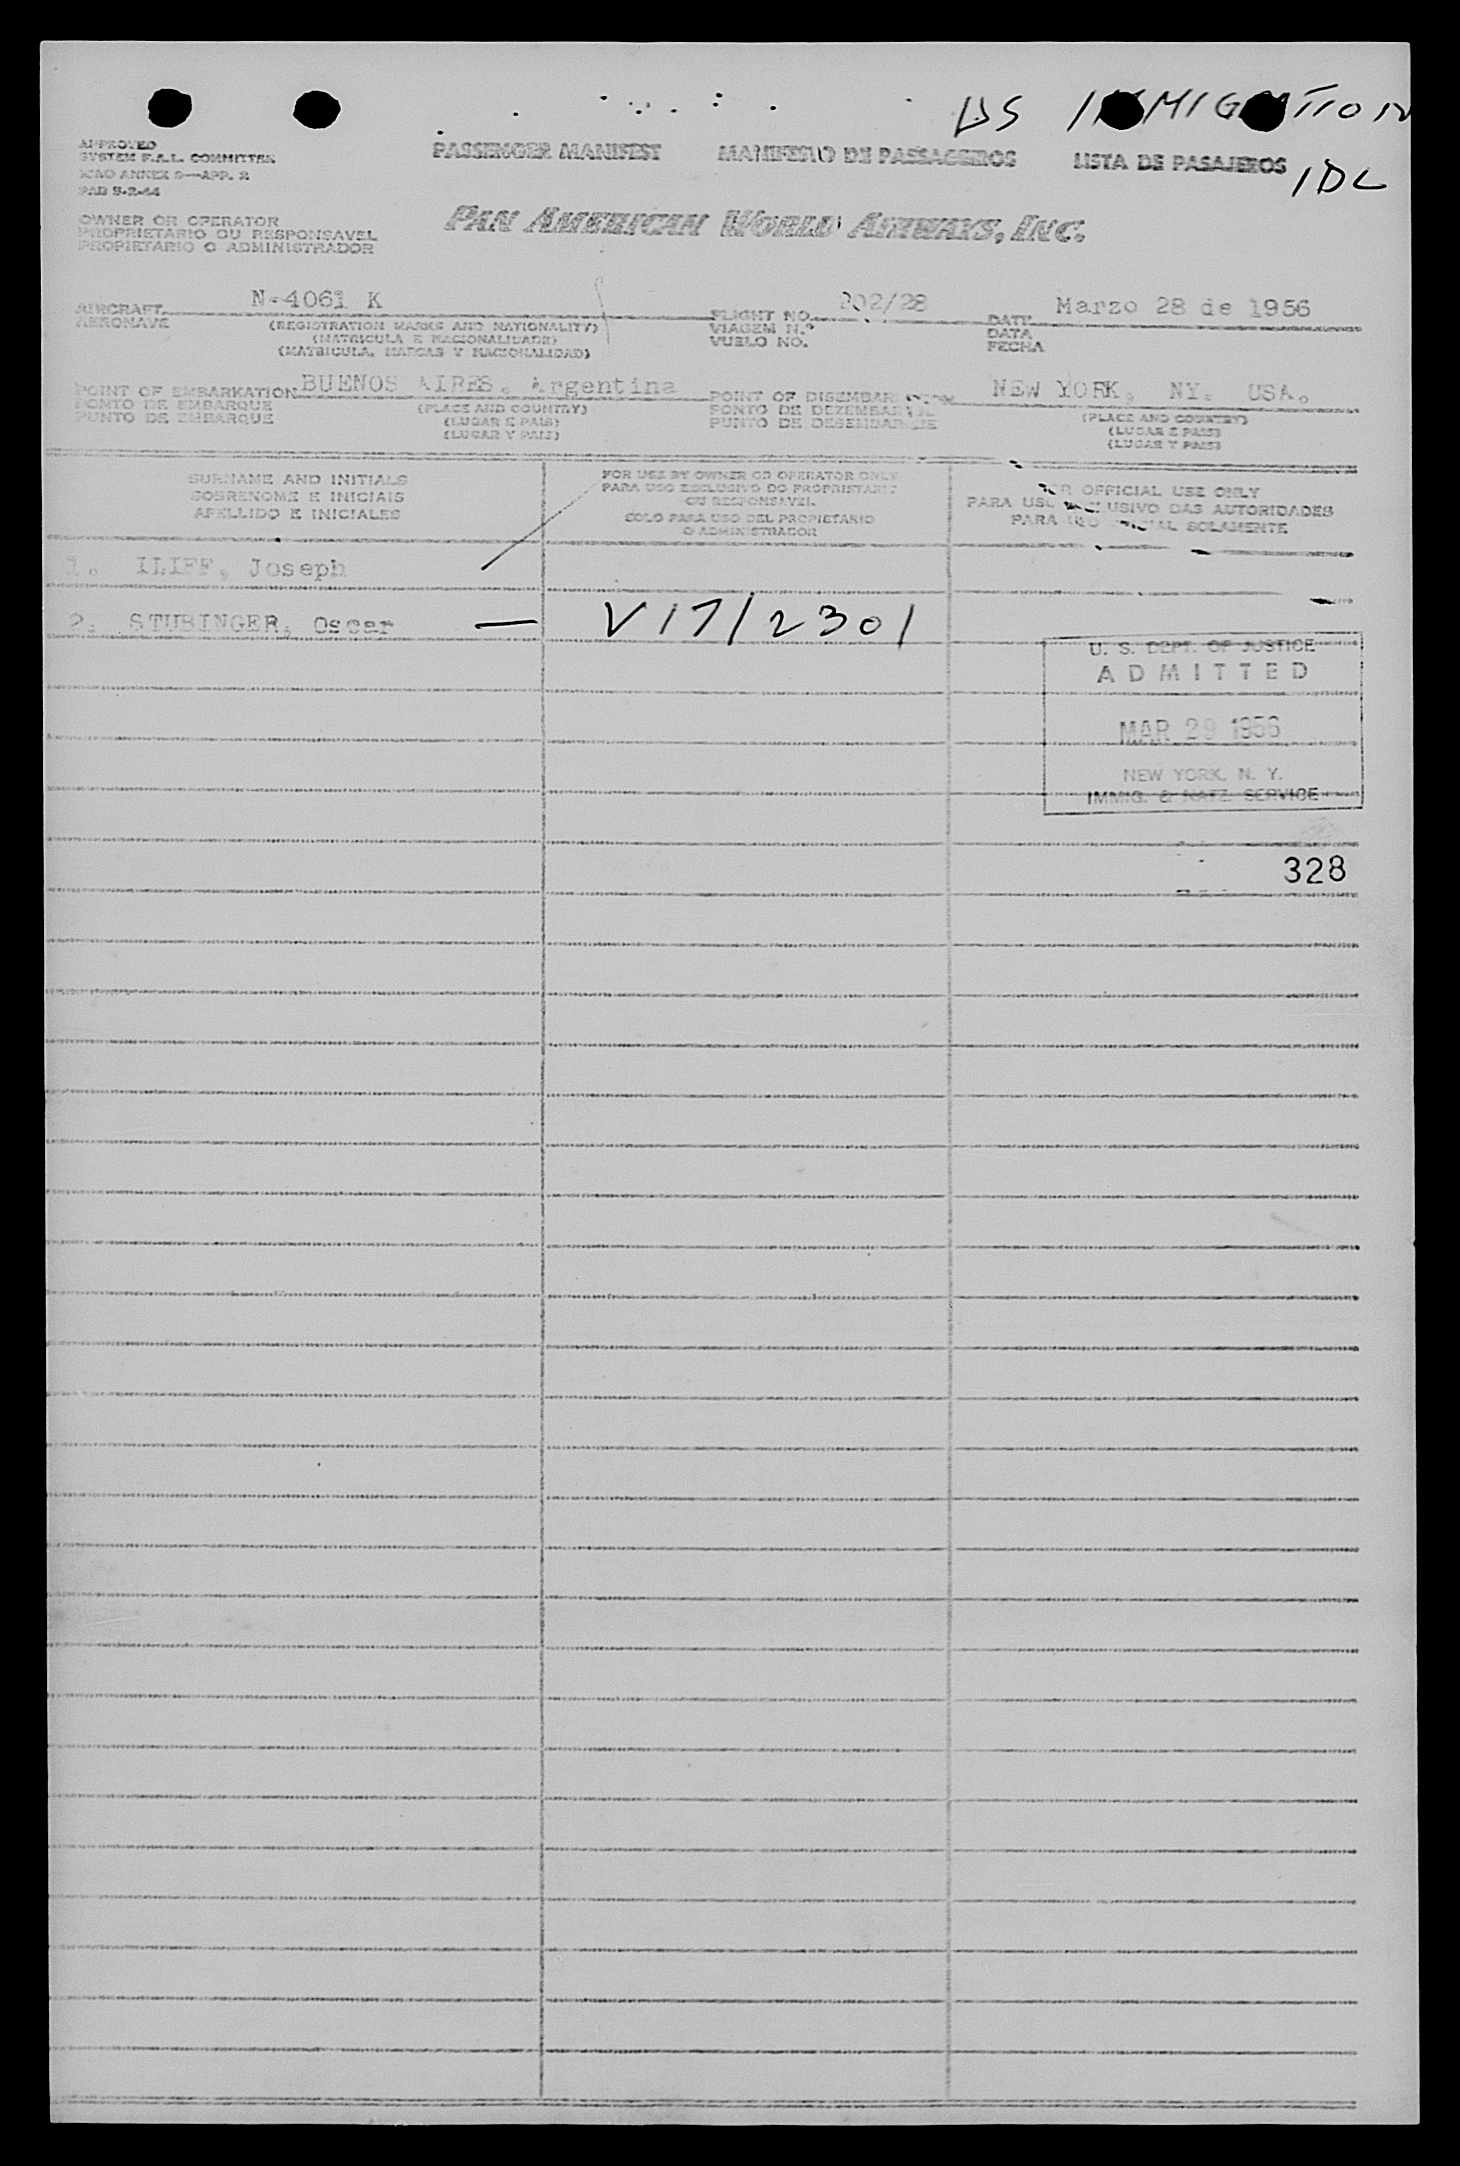 US IMMIGRATION
IDL
APPROVED
SYSTEM F.A.L. COMMITTEE
ICAO ANNEX 9—APP. 2
PAB 5-2-44
PASSENGER MANIFEST MANIFESTO DE PASSAGEIROS LISTA DE PASAJEROS
OWNER OR OPERATOR
PROPRIETARIO OU RESPONSAVEL
PROPIETARIO O ADMINISTRADOR
PAN AMERICAN WORLD AIRWAYS, INC.
AIRCRAFT N-4061 K
AERONAVE
(REGISTRATION MARKS AND NATIONALITY)
(MATRICULA E NACIONALIDADE)
(MATRICULA, MARCAS Y NACIONALIDAD)
FLIGHT NO. 202/28
VIAGEM N.º
VUELO NO.
DATE Marzo 28 de 1956
DATA
FECHA
POINT OF EMBARKATION BUENOS AIRES, Argentina
PONTO DE EMBARQUE
PUNTO DE EMBARQUE
(PLACE AND COUNTRY)
(LUGAR E PAIS)
(LUGAR Y PAIS)
POINT OF DISEMBARKATION NEW YORK, NY. USA.
PONTO DE DEZEMBARQUE
PUNTO DE DESEMBARQUE
(PLACE AND COUNTRY)
(LUGAR E PAIS)
(LUGAR Y PAIS)
SURNAME AND INITIALS
SOBRENOME E INICIAIS
APELLIDO E INICIALES
FOR USE BY OWNER OR OPERATOR ONLY
PARA USO ESCLUSIVO DO PROPRIETARIO
OU RESPONSAVEL
SOLO PARA USO DEL PROPIETARIO
O ADMINISTRADOR
FOR OFFICIAL USE ONLY
PARA USO EXCLUSIVO DAS AUTORIDADES
PARA USO OFICIAL SOLAMENTE
1. ILIFF, Joseph
2. STUBINGER, Oscar — V17/2301
U. S. DEPT. OF JUSTICE
ADMITTED
MAR 29 1956
NEW YORK, N. Y.
IMMIG. & NATZ. SERVICE
328